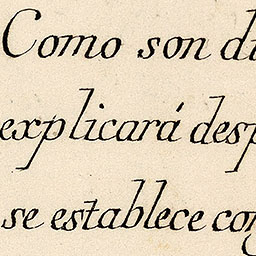 Como son di
explicará desp
se establece con